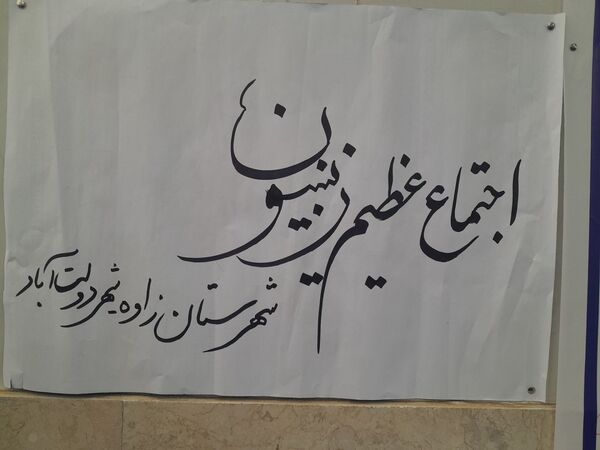 اجتماع عظیم زینبیون
شهرستان زاوه شهر دولت آباد